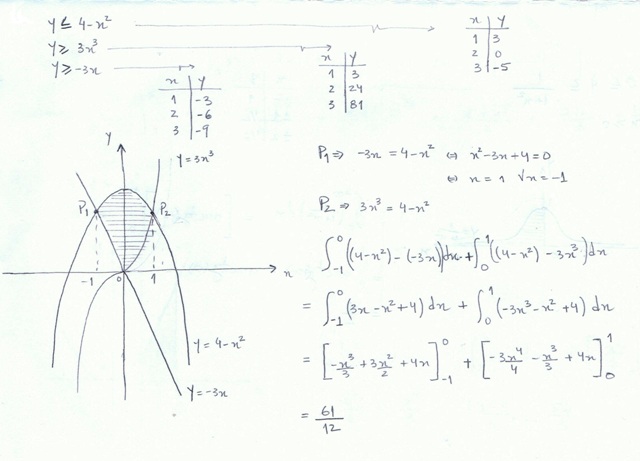 y ≤ 4-x²
y ≥ 3x³
y ≥ -3x
x | y
1 | 3
2 | 0
3 | -5
x | y
1 | 3
2 | 24
3 | 81
x | y
1 | -3
2 | -6
3 | -9
y
y = 3x³
P₁
P₂
-1
0
1
x
y = 4-x²
y = -3x
P₁ ⇒ -3x = 4-x² ⇔ x²-3x+4=0
⇔ x = 1 √x = -1
P₂ ⇒ 3x³ = 4-x²
∫₋₁⁰ ((4-x²) - (-3x)) dx + ∫₀¹ ((4-x²) - 3x³) dx
= ∫₋₁⁰ (3x - x² + 4) dx + ∫₀¹ (-3x³ - x² + 4) dx
= [-x³/3 + 3x²/2 + 4x]₋₁⁰ + [-3x⁴/4 - x³/3 + 4x]₀¹
= 61/12